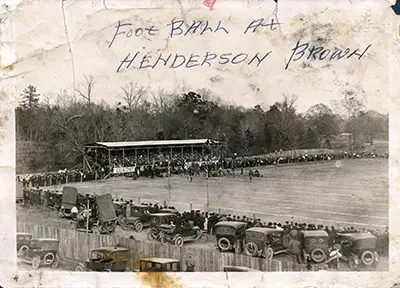 Foot BALL At
HENDERSON BROWN